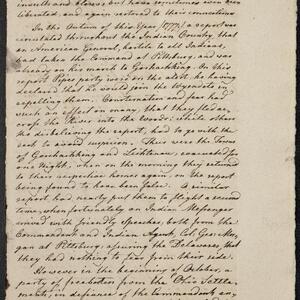 insults and blows, but have sometimes even been
liberated, and again restored to their connections
In the Autumn of this Year, (1777,) a report was
circulated throughout the Indian Country, that
an American General, hostile to all Indians,
had taken the Command at Pittsburg, and was
already on his march to Goschachking. On this
report Pipes party were on the alert, he having
declared that he would join the Wyandots in
repelling them. Consternation and fear had
such an effect on many, that they fled a-
cross the River into the Woods; while others
tho disbelieving the report, had to go with the
rest to avoid suspicion. Thus were the Towns
of Goschachking and Lichtenau, evacuated for
one Night, when on the morning they returned
to their respective homes again, on the report
being found to have been false. A similar
report, had nearly put them to flight a second
time, when fortunately an Indian Messenger
arrived with friendly Speeches, both from the
Commandant and Indian Agent, Col. Geo: Mor-
gan at Pittsburg, assuring the Delawares, that
they had nothing to fear from their side.
However in the beginning of October, a
party of freebooters from the Ohio Settle-
ments, in defiance of the Commandants or-